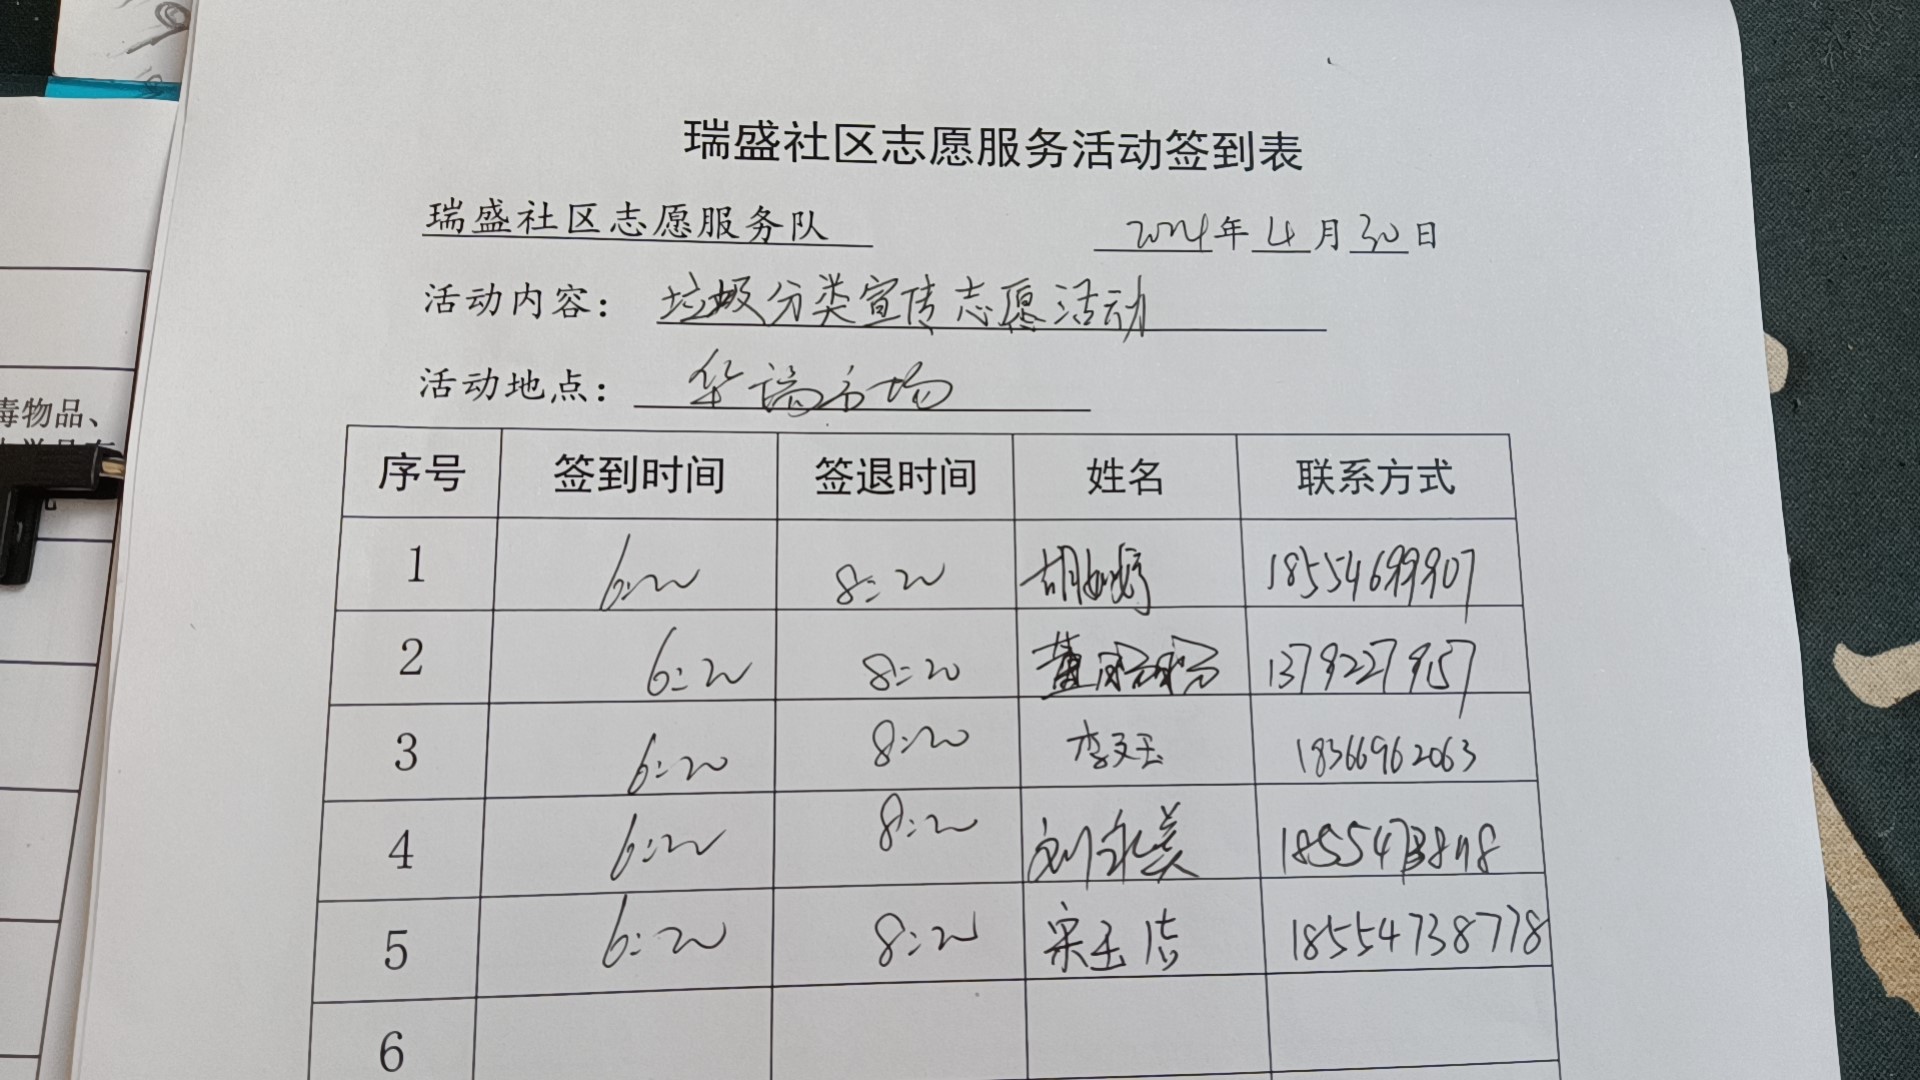 瑞盛社区志愿服务活动签到表
瑞盛社区志愿服务队 2024年4月30日
活动内容：垃圾分类宣传志愿活动
活动地点：华瑞市场
序号 签到时间 签退时间 姓名 联系方式
1 6:20 8:20 胡 18554699907
2 6:20 8:20 董 13792279157
3 6:20 8:20 李文玉 18366962063
4 6:20 8:20 刘永美
5 6:20 8:20 宋玉洁 18554738778
6
毒物品、